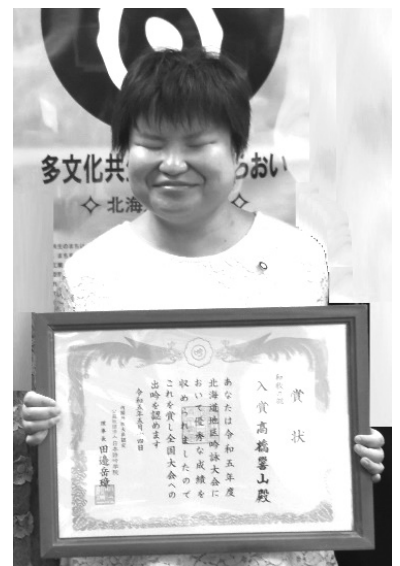 多文化共
らおい
北海
賞状
和歌の部
入賞 高橋響山殿
あなたは令和五年度
北海道地区吟詠大会に
おいて優秀な成績を
収められましたので
これを賞し全国大会への
出吟を認めます
理事長 田邉岳璋